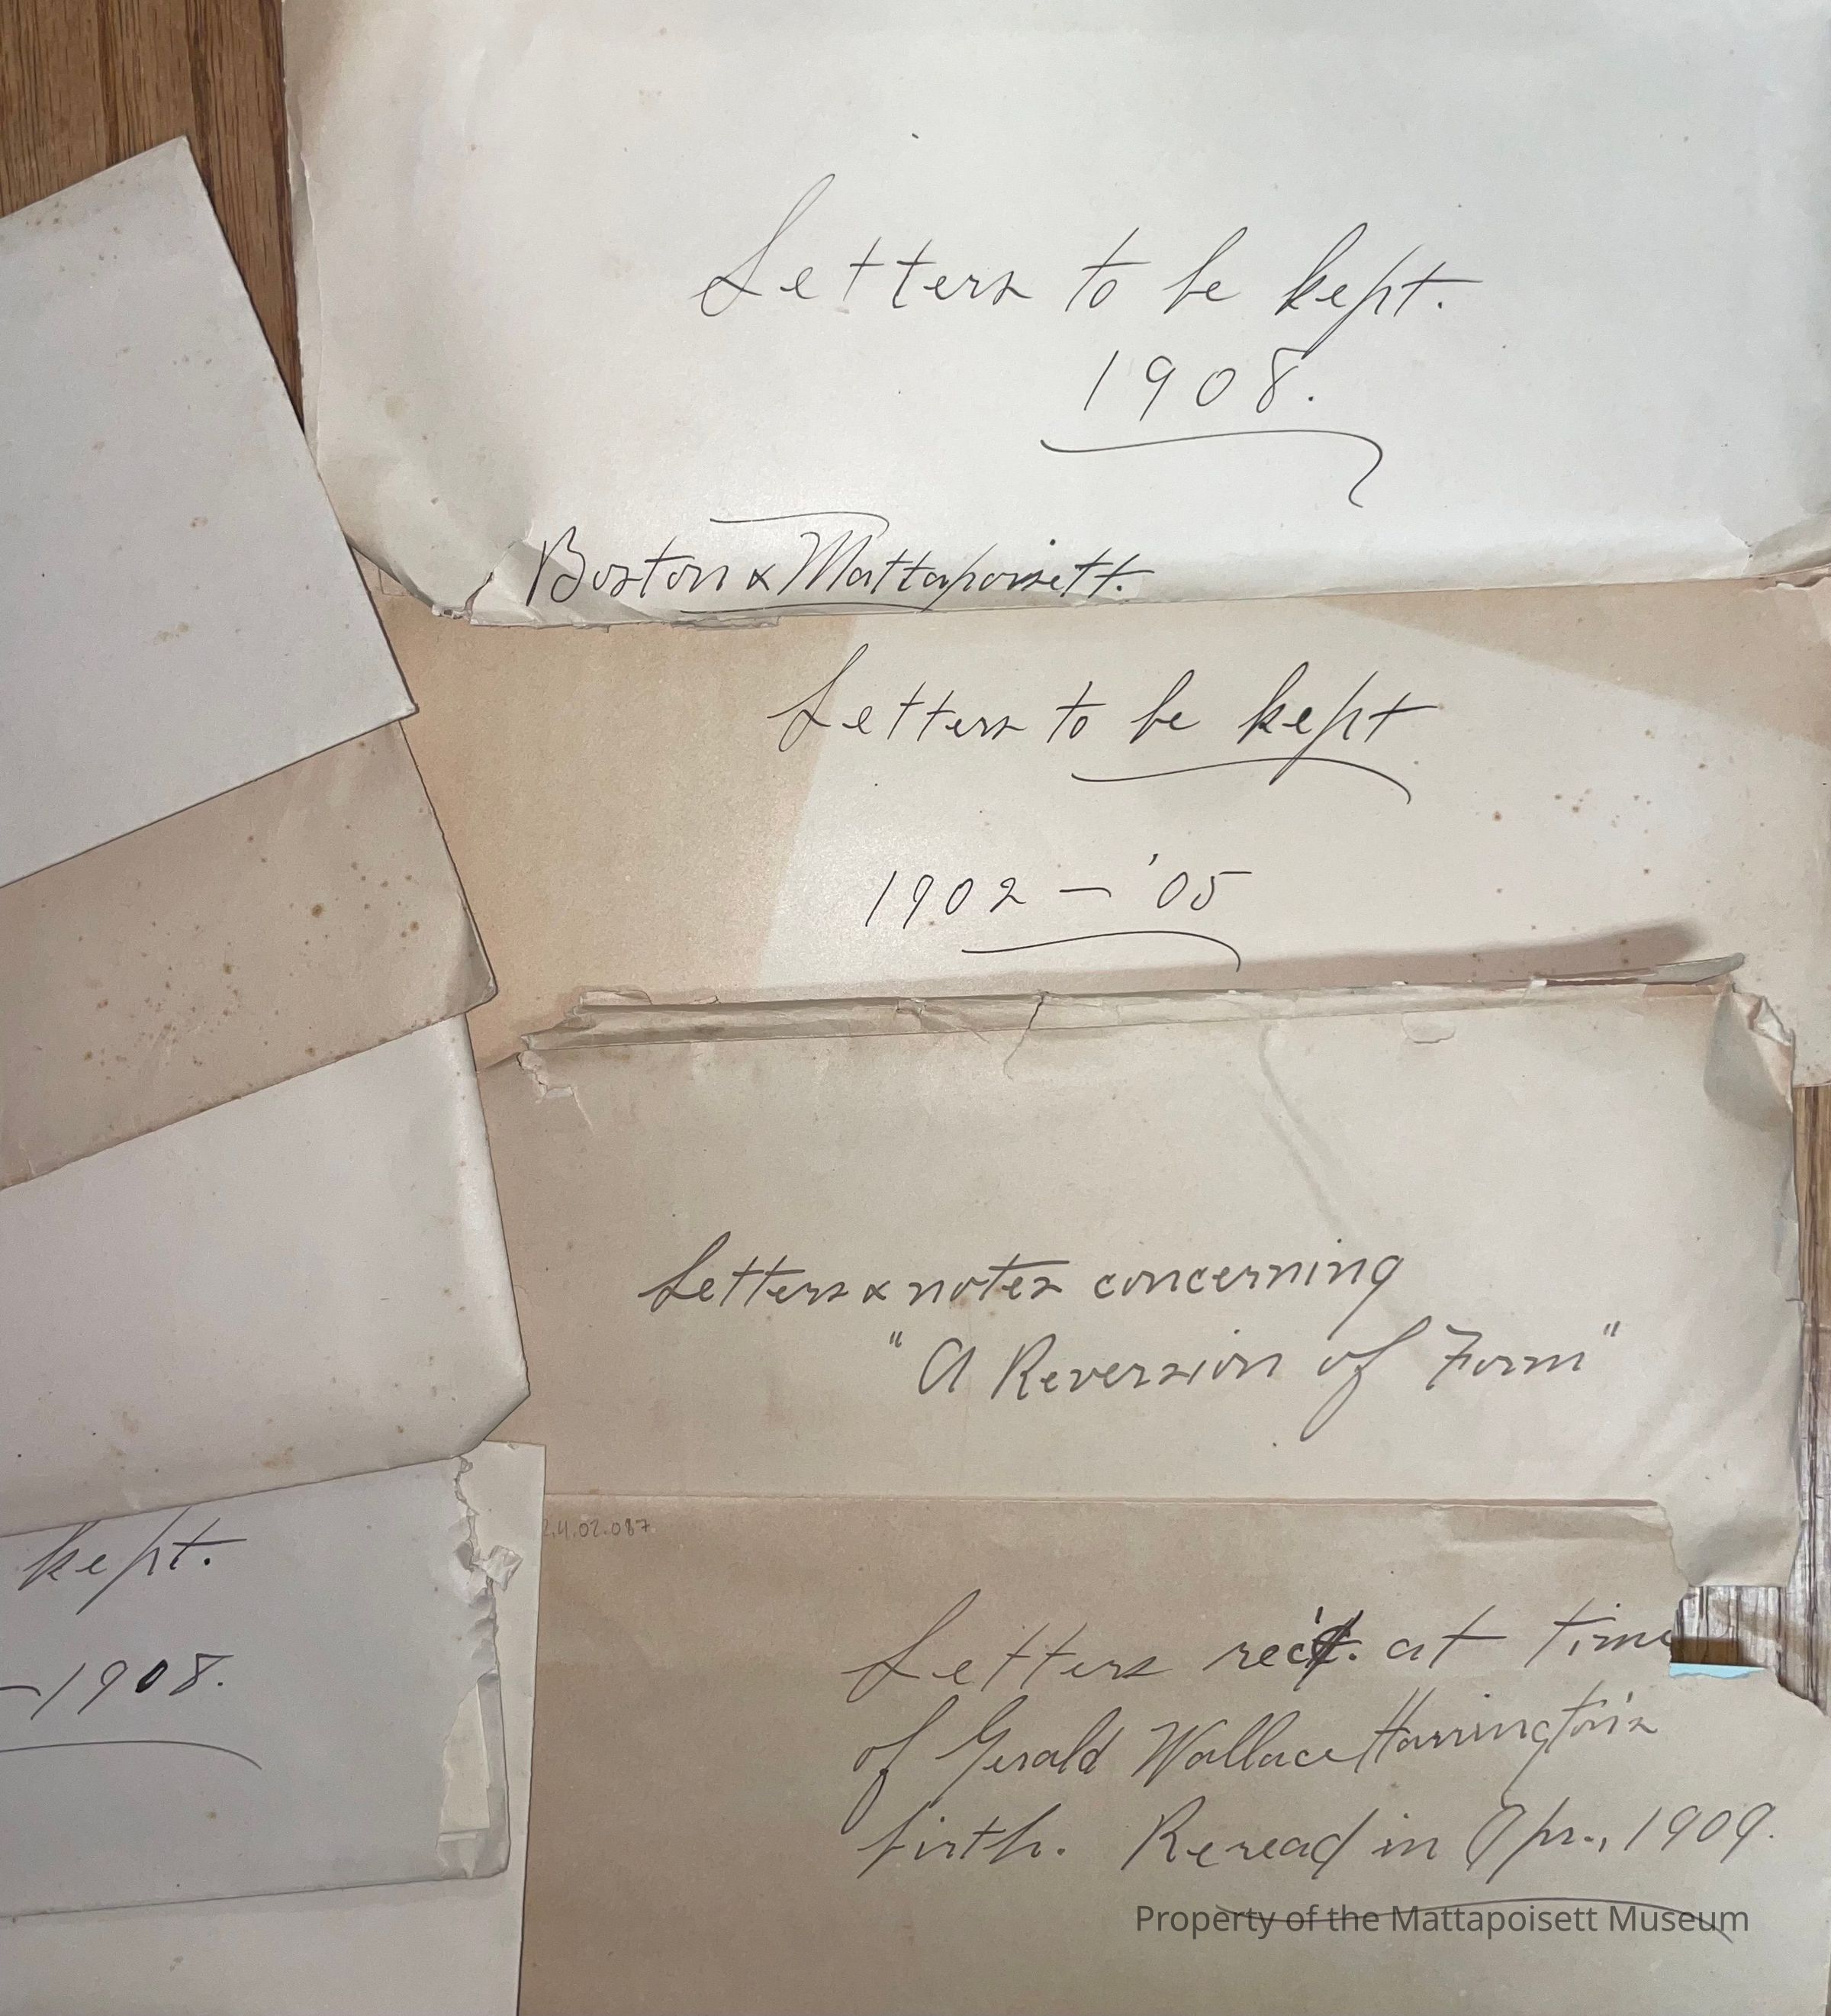 Letters to be kept.
1908.
Boston & Mattapoisett.
Letters to be kept
1902 - '05
Letters & notes concerning
"A Reversion of Form"
2.4.02.087
kept.
-1908.
Letters rec'd. at time
of Gerald Wallace Harrington's
birth. Reread in Apr., 1909.
Property of the Mattapoisett Museum